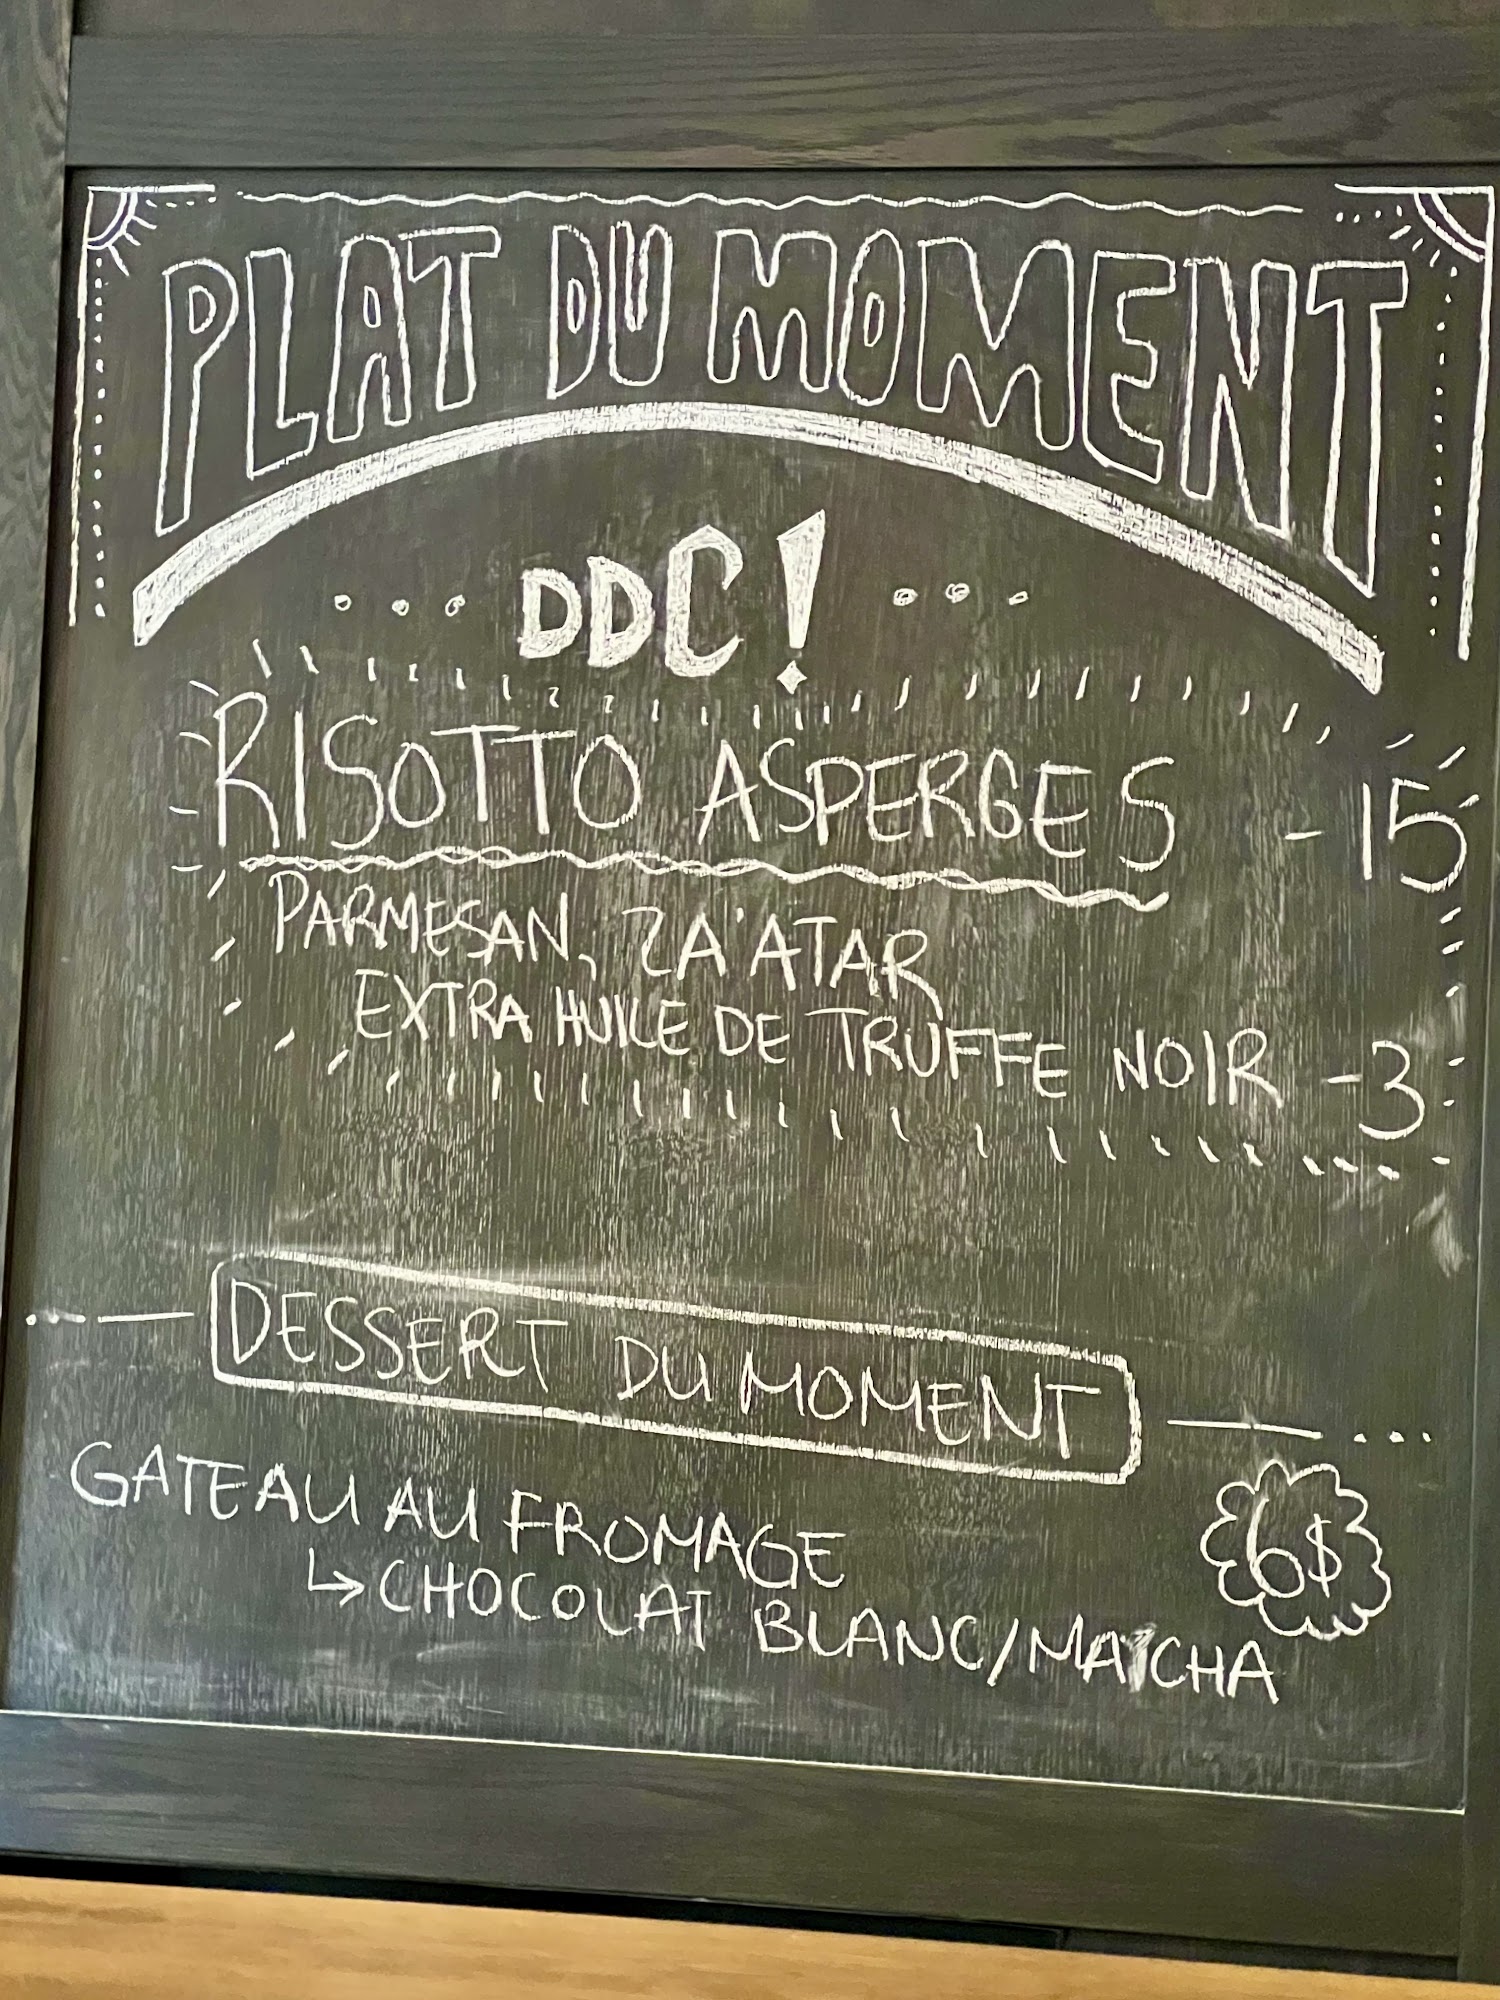 PLAT DU MOMENT
DDC!
RISOTTO ASPERGES - 15
PARMESAN, ZA'ATAR
EXTRA HUILE DE TRUFFE NOIR - 3
DESSERT DU MOMENT
GATEAU AU FROMAGE
6$
↳ CHOCOLAT BLANC/MATCHA